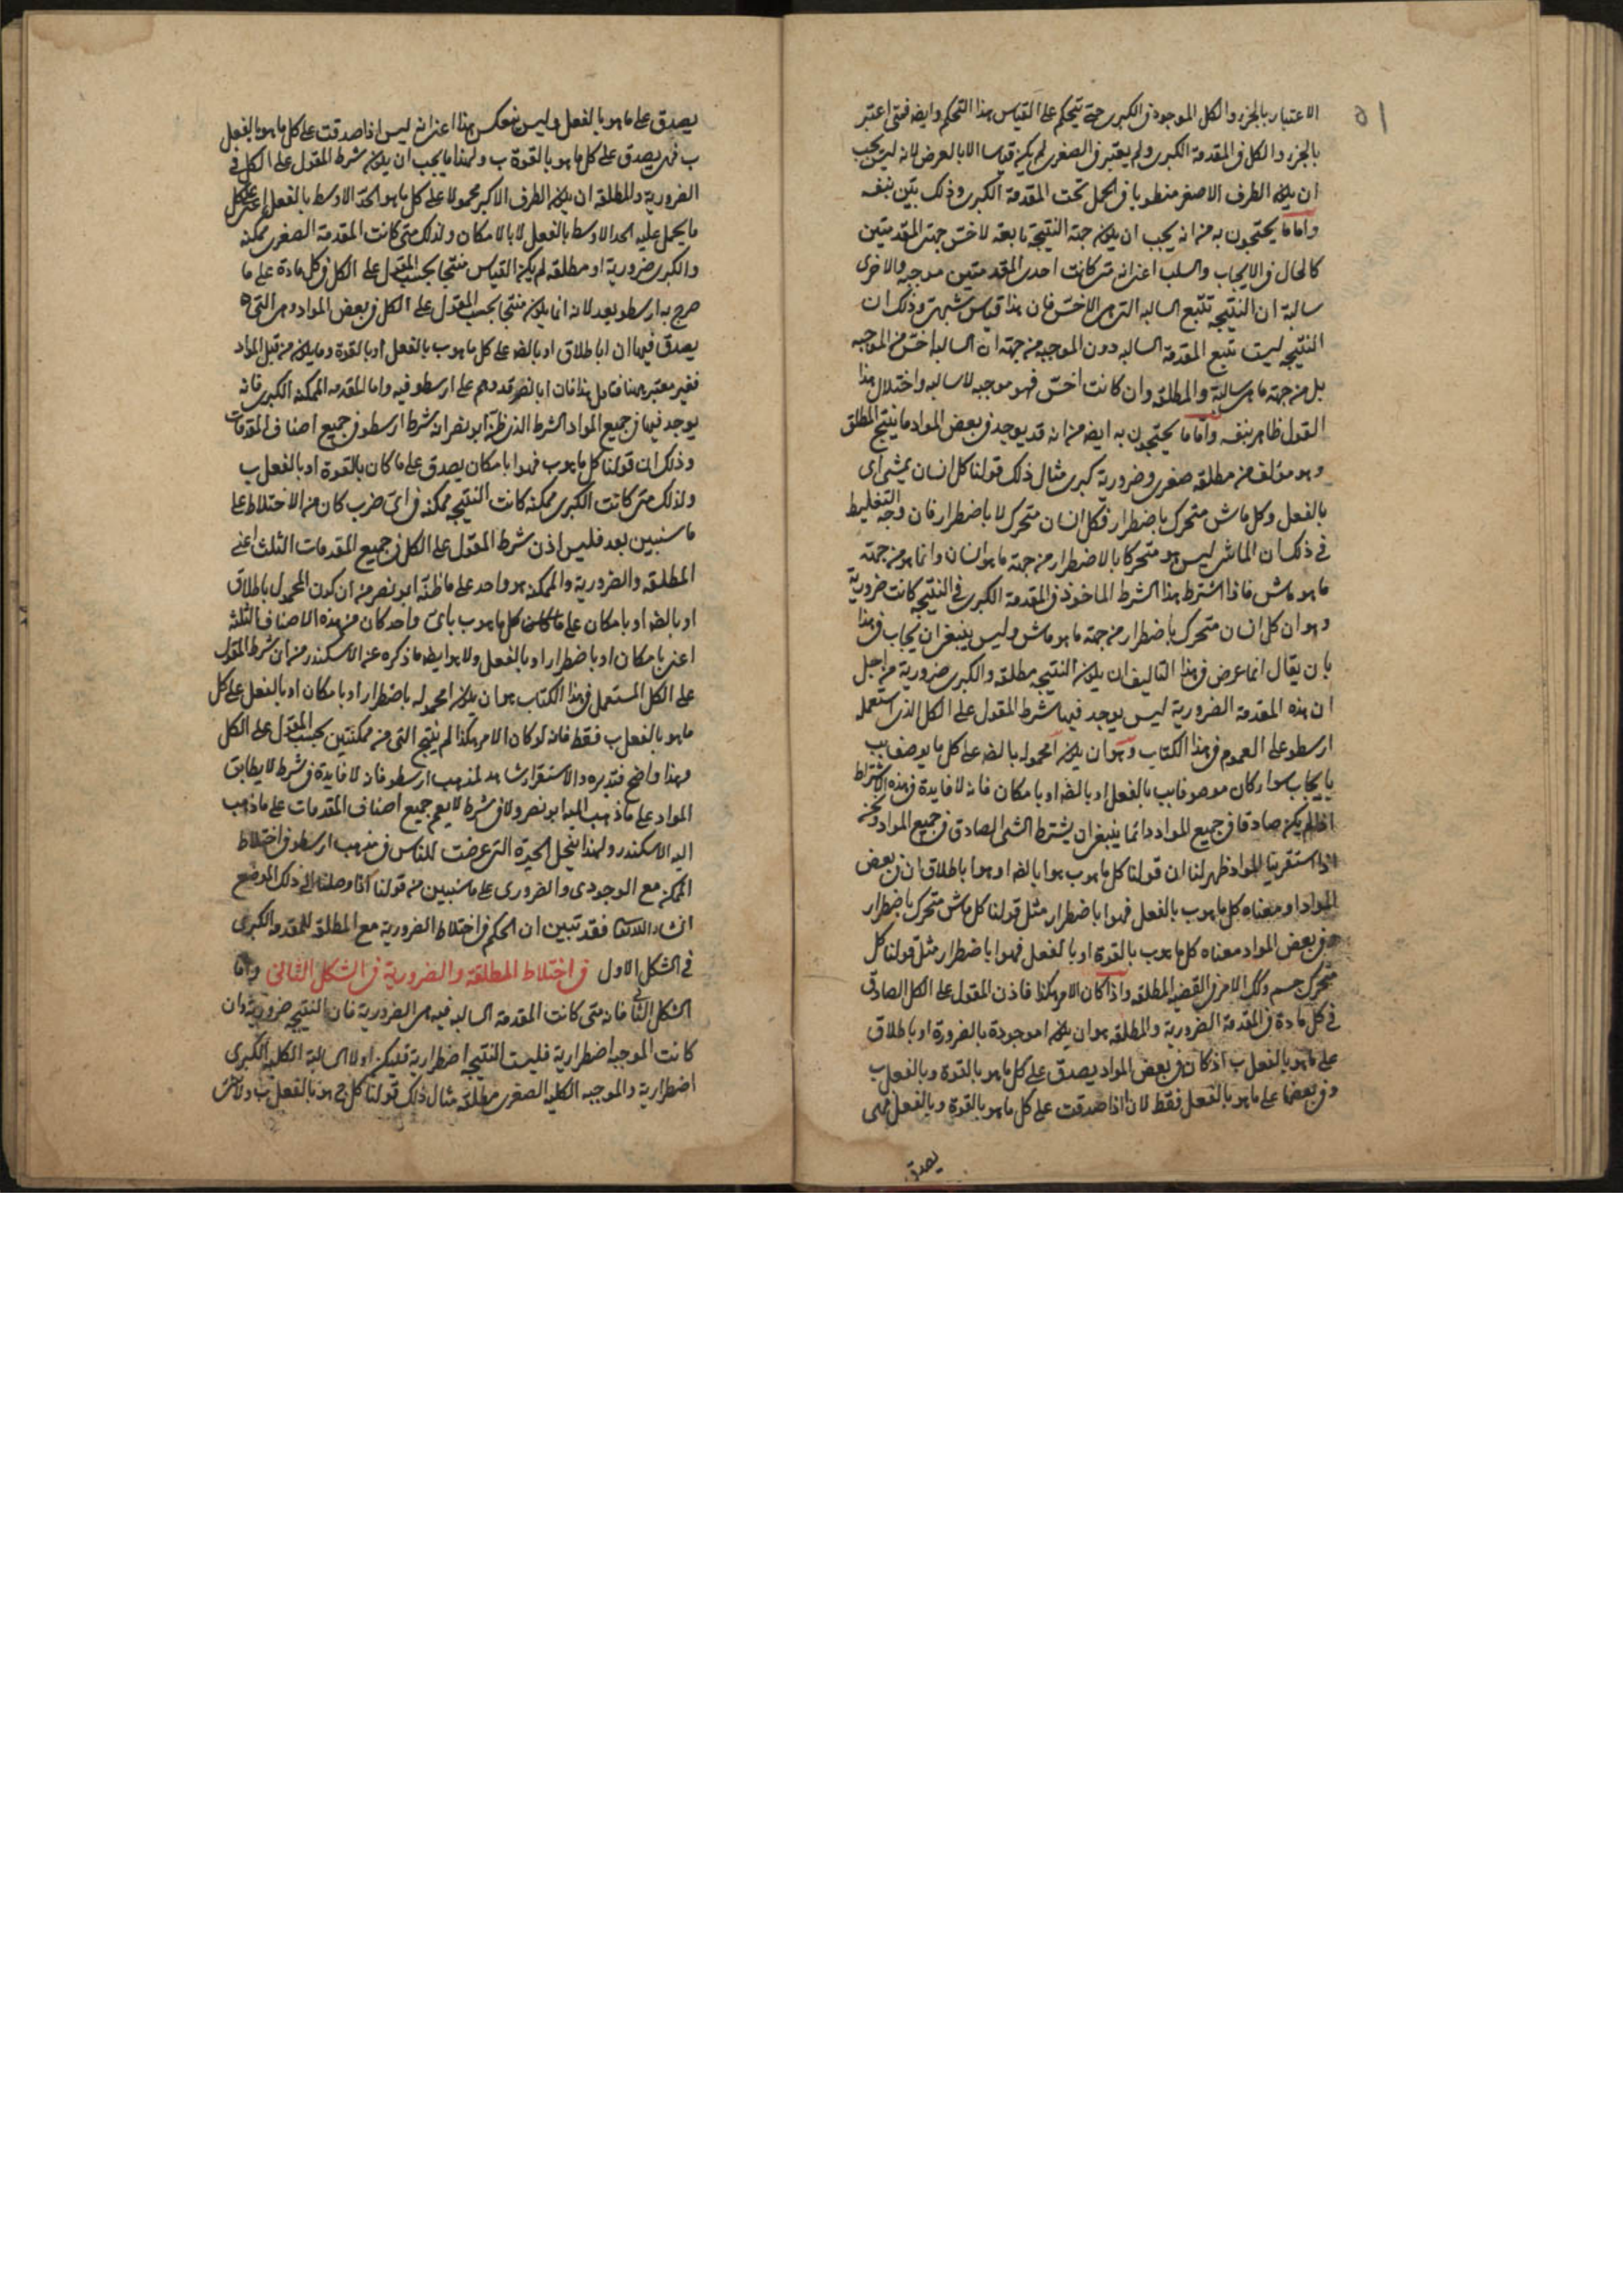 الاعتبار بالجزء والكل الموجود في الكبرى حتى يتحكم على القياس هذا التحكم وايضه فمتى اعتبر
بالجزء والكل في المقدمة الكبرى ولم يعتبر في الصغرى لم يكن قياسا الا بالعرض لانه ليس يجب
ان يكون الطرف الاصغر منطويا في الحمل تحت المقدمة الكبرى وذلك بيّن بنفسه
واما ما يحتجون به من انه يجب ان يكون جهة النتيجة تابعة لاخسّ جهتى المقدمتين
كالحال في الايجاب والسلب اعنى انه متى كانت احدى المقدمتين موجبه والاخرى
سالبة ان النتيجه تتبع السالبه التى هى الاخسّ فان هذا قياس شبهى وذلك ان
النتيجه ليست تتبع المقدمة السالبه دون الموجبه من جهة ان السالبه اخسّ من الموجبه
بل من جهة ما هى سالبة والمطلقه وان كانت اخسّ فهو موجبه لا سالبه واختلال هذا
القول ظاهر بنفسه واما ما يحتجون به ايضه من انه قد يوجد في بعض المواد ما ينتج المطلق
وهو مؤلف من مطلقه صغرى وضرورية كبرى مثال ذلك قولنا كل انسان يمشى اى
بالفعل وكل ماش متحرك باضطرار فكل انسان متحرك لا باضطرار فان وجه التغليط
فى ذلك ان الماشى ليس هو متحركا بالاضطرار من جهة ما هو انسان وانما هو من جهة
ما هو ماش فاذا اشترط هذا الشرط الماخوذ في المقدمة الكبرى فى النتيجه كانت ضرورية
وهو ان كل انسان متحرك باضطرار من جهة ما هو ماش وليس ينبغى ان يجاب في هذا
بان يقال انما عرض في هذا التاليف ان يكون النتيجه مطلقه والكبرى ضرورية من اجل
ان هذه المقدمة الضرورية ليس يوجد فيها شرط المقول على الكل الذى استعمله
ارسطو على العموم في هذا الكتاب وهو ان يكون ا محمولا بالضه على كل ما يوصف ب ب
بايجاب سوا كان موصوفا ب ب بالفعل او بالضه او بامكان فانه لا فايدة في هذه الاشتراط
اذا لم يكن صادقا في جميع المواد وانما ينبغى ان يشترط الشى الصادق في جميع المواد ونحن
اذا استقرينا المواد ظهر لنا ان قولنا كل ما هو ب هو ا بالضه او هو ا باطلاق ان في بعض
المواد معناه كل ما هو ب بالفعل فهو ا باضطرار مثل قولنا كل ماش متحرك باضطرار
وفي بعض المواد معناه كل ما هو ب بالقوة او بالفعل فهو ا باضطرار مثل قولنا كل
متحرك جسم وكك الامر في القضيه المطلقه واذا كان الامر هكذا فاذن المقول على الكل الصادق
فى كل مادة في المقدمة الضرورية والمطلقه هو ان يكون ا موجودة بالضرورة او باطلاق
على ما هو بالفعل ب اذ كان في بعض المواد يصدق على كل ما هو بالقوة وبالفعل ب
وفي بعضها على ما هو بالفعل فقط لان اذا صدقت على كل ما هو بالقوة وبالفعل فهى
يصدق
يصدق على ما هو بالفعل وليس ينعكس هذا اعنى انه ليس اذا صدقت على كل ما هو بالفعل
ب فهى يصدق على كل ما هو بالقوة ب ولهذا ما يجب ان يكون شرط المقول على الكل فى
الضرورية والمطلقه ان يكون الطرف الاكبر محمولا على كل ما هو الحد الاوسط بالفعل اعنى على كل
ما يحمل عليه الحد الاوسط بالفعل لا بالامكان ولذلك متى كانت المقدمة الصغرى ممكنه
والكبرى ضرورية او مطلقه لم يكن القياس منتجا بحسب المقول على الكل في كل مادة على ما
صرح به ارسطو بعد لانه انما يكون منتجا بحسب المقول على الكل في بعض المواد وهى التى
يصدق فيها ان ا باطلاق او بالضه على كل ما هو ب بالفعل او بالقوة وما يكون من قبل المواد
فغير معتبر ههنا فتامل هذا فان ابا نصر قد وهم على ارسطو فيه واما المقدمه الممكنه الكبرى فانه
يوجد فيها في جميع المواد الشرط الذى ظنّه ابو نصر انه شرط ارسطو في جميع اصناف المقدمات
وذلك ان قولنا كل ما هو ب فهو ا بامكان يصدق على ما كان بالقوة او بالفعل ب
ولذلك متى كانت الكبرى ممكنه كانت النتيجه ممكنه فى اىّ ضرب كان من الاختلاط على
ما سنبين بعد فليس اذن شرط المقول على الكل في جميع المقدمات الثلث اعنى
المطلقه والضرورية والممكنه هو واحد على ما ظنّه ابو نصر من ان كون المحمول باطلاق
او بالضه او بامكان على كل ما هو ب باىّ واحد كان من هذه الاصناف الثلثه
اعنى بامكان او باضطرار او بالفعل ولا هو ايضه ما ذكره عن الاسكندر من ان شرط المقول
على الكل المستعمل في هذا الكتاب هو ان يكون ا محموله باضطرار او بامكان او بالفعل على كل
ما هو بالفعل ب فقط فانه لو كان الامر هكذا لم ينتج التى من ممكنتين بحسب المقول على الكل
وهذا واضح فتدبره والاستقرار شاهد لمذهب ارسطو فانه لا فايدة فى شرط لا يطابق
المواد على ما ذهب اليه ابو نصر ولا في شرط لا يعم جميع اصناف المقدمات على ما ذهب
اليه الاسكندر ولهذا ينحل الحيرة التى عرضت للناس فى مذهب ارسطو في اختلاط
الممكن مع الوجودى والضرورى على ما سنبين من قولنا اذا وصلنا الى ذلك الموضع
انشاء الله تعالى فقد تبين ان الحكم في اختلاط الضرورية مع المطلقه للمقدمه الكبرى
فى الشكل الاول في اختلاط المطلقه والضرورية في الشكل الثانى واما
الشكل الثانى فانه متى كانت المقدمة السالبه فيه هى الضرورية فان النتيجه ضرورية وان
كانت الموجبه اضطرارية فليست النتيجه اضطرارية فليكن اولا السالبة الكلية الكبرى
اضطرارية والموجبه الكليه الصغرى مطلقه مثال ذلك قولنا كل ج هو بالفعل ب ولا شى